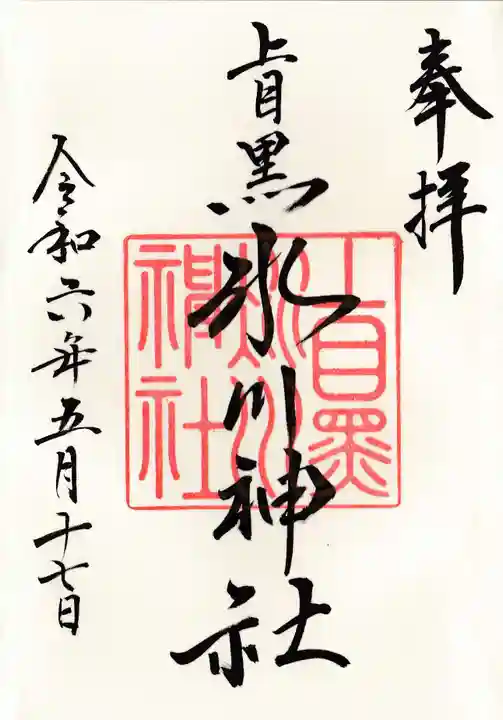 奉拝
上目黒氷川神社
上目黒
氷川
神社
令和六年五月十七日